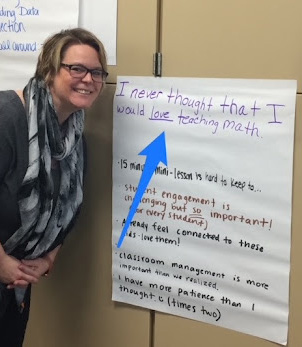 ding Data
nction
all around
I never thought that I
would love teaching math.
· 15 minute mini-lesson is hard to keep to...
· student engagement is
challenging but so important!
(for every student)
· Already feel connected to these
kids - love them!
· classroom management is more
important than we realized.
· I have more patience than I
thought (times two)